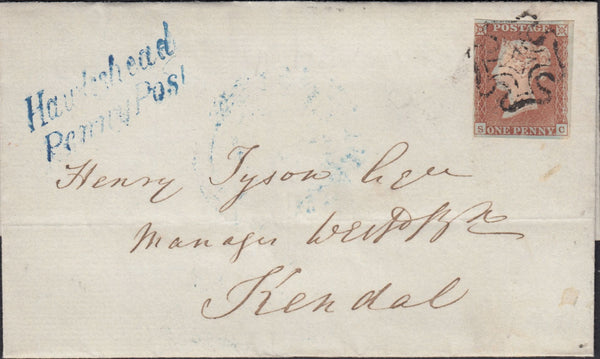 Hawkshead
Penny Post
POSTAGE
S ONE PENNY C
Henry Tyson Esqre
Manager
Kendal